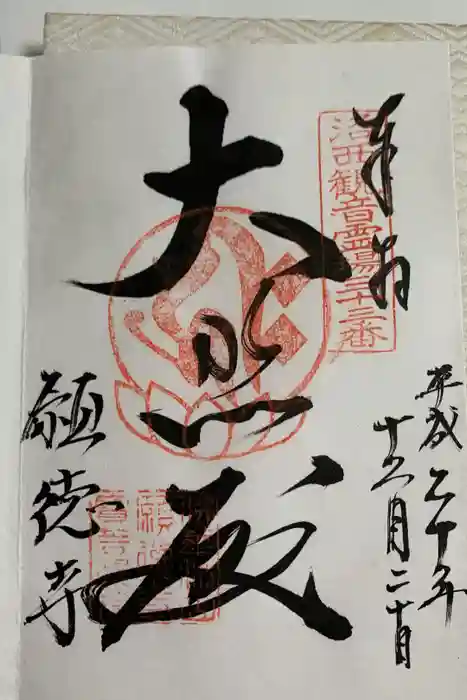 奉拝
洛西観音霊場三十三番
平成二十年
十二月二十日
大悲殿
願徳寺